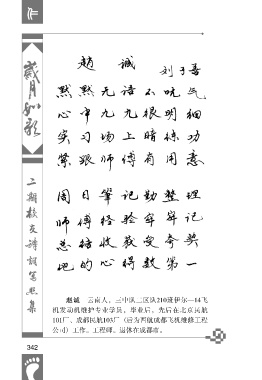 作
岁月如歌
二期校友诗词书画集
赵诚
刘于善
默默无语不吭气
心中九九很明细
实习场上暗练功
紧跟师傅有用意
周日笔记勤整理
师傅经验牢牢记
总结收获受夸奖
吧的心得数第一
赵诚 云南人，三中队二区队210班伊尔—14飞
机发动机维护专业学员。毕业后，先后在北京民航
101厂、成都民航103厂（后为西航成都飞机维修工程
公司）工作。工程师。退休在成都市。
342